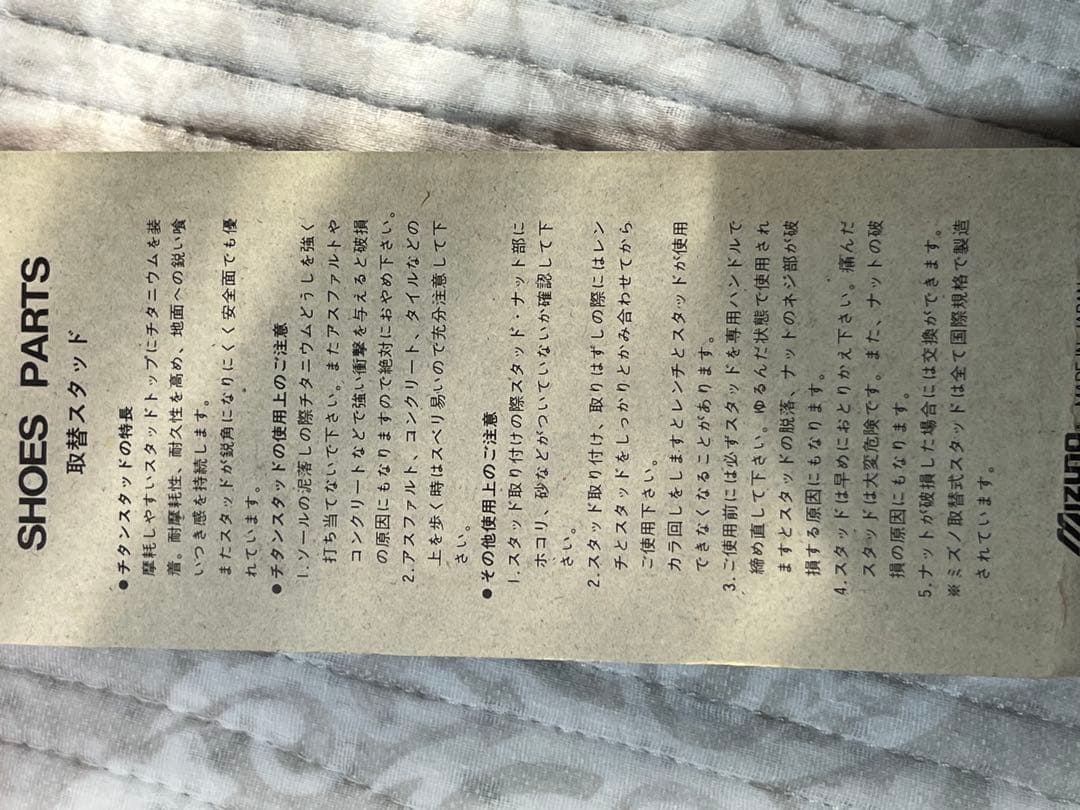 SHOES PARTS
取替スタッド
●チタンスタッドの特長
摩耗しやすいスタッドトップにチタニウムを装
着。耐摩耗性、耐久性を高め、地面への鋭い喰
いつき感を持続します。
またスタッドが鋭角になりにくく安全面でも優
れています。
●チタンスタッドの使用上のご注意
1.ソールの泥落しの際チタニウムどうしを強く
打ち当てないで下さい。またアスファルトや
コンクリートなどで強い衝撃を与えると破損
の原因にもなりますので絶対におやめ下さい。
2.アスファルト、コンクリート、タイルなどの
上を歩く時はスベリ易いので充分注意して下
さい。
●その他使用上のご注意
1.スタッド取り付けの際スタッド・ナット部に
ホコリ、砂などがついていないか確認して下
さい。
2.スタッド取り付け、取りはずしの際にはレン
チとスタッドをしっかりとかみ合わせてから
ご使用下さい。
カラ回しをしますとレンチとスタッドが使用
できなくなることがあります。
3.ご使用前には必ずスタッドを専用ハンドルで
締め直して下さい。ゆるんだ状態で使用され
ますとスタッドの脱落、ナットのネジ部が破
損する原因にもなります。
4.スタッドは早めにおとりかえ下さい。痛んだ
スタッドは大変危険です。また、ナットの破
損の原因にもなります。
5.ナットが破損した場合には交換ができます。
※ミズノ取替式スタッドは全て国際規格で製造
されています。
Mizuno
MADE IN JAPAN